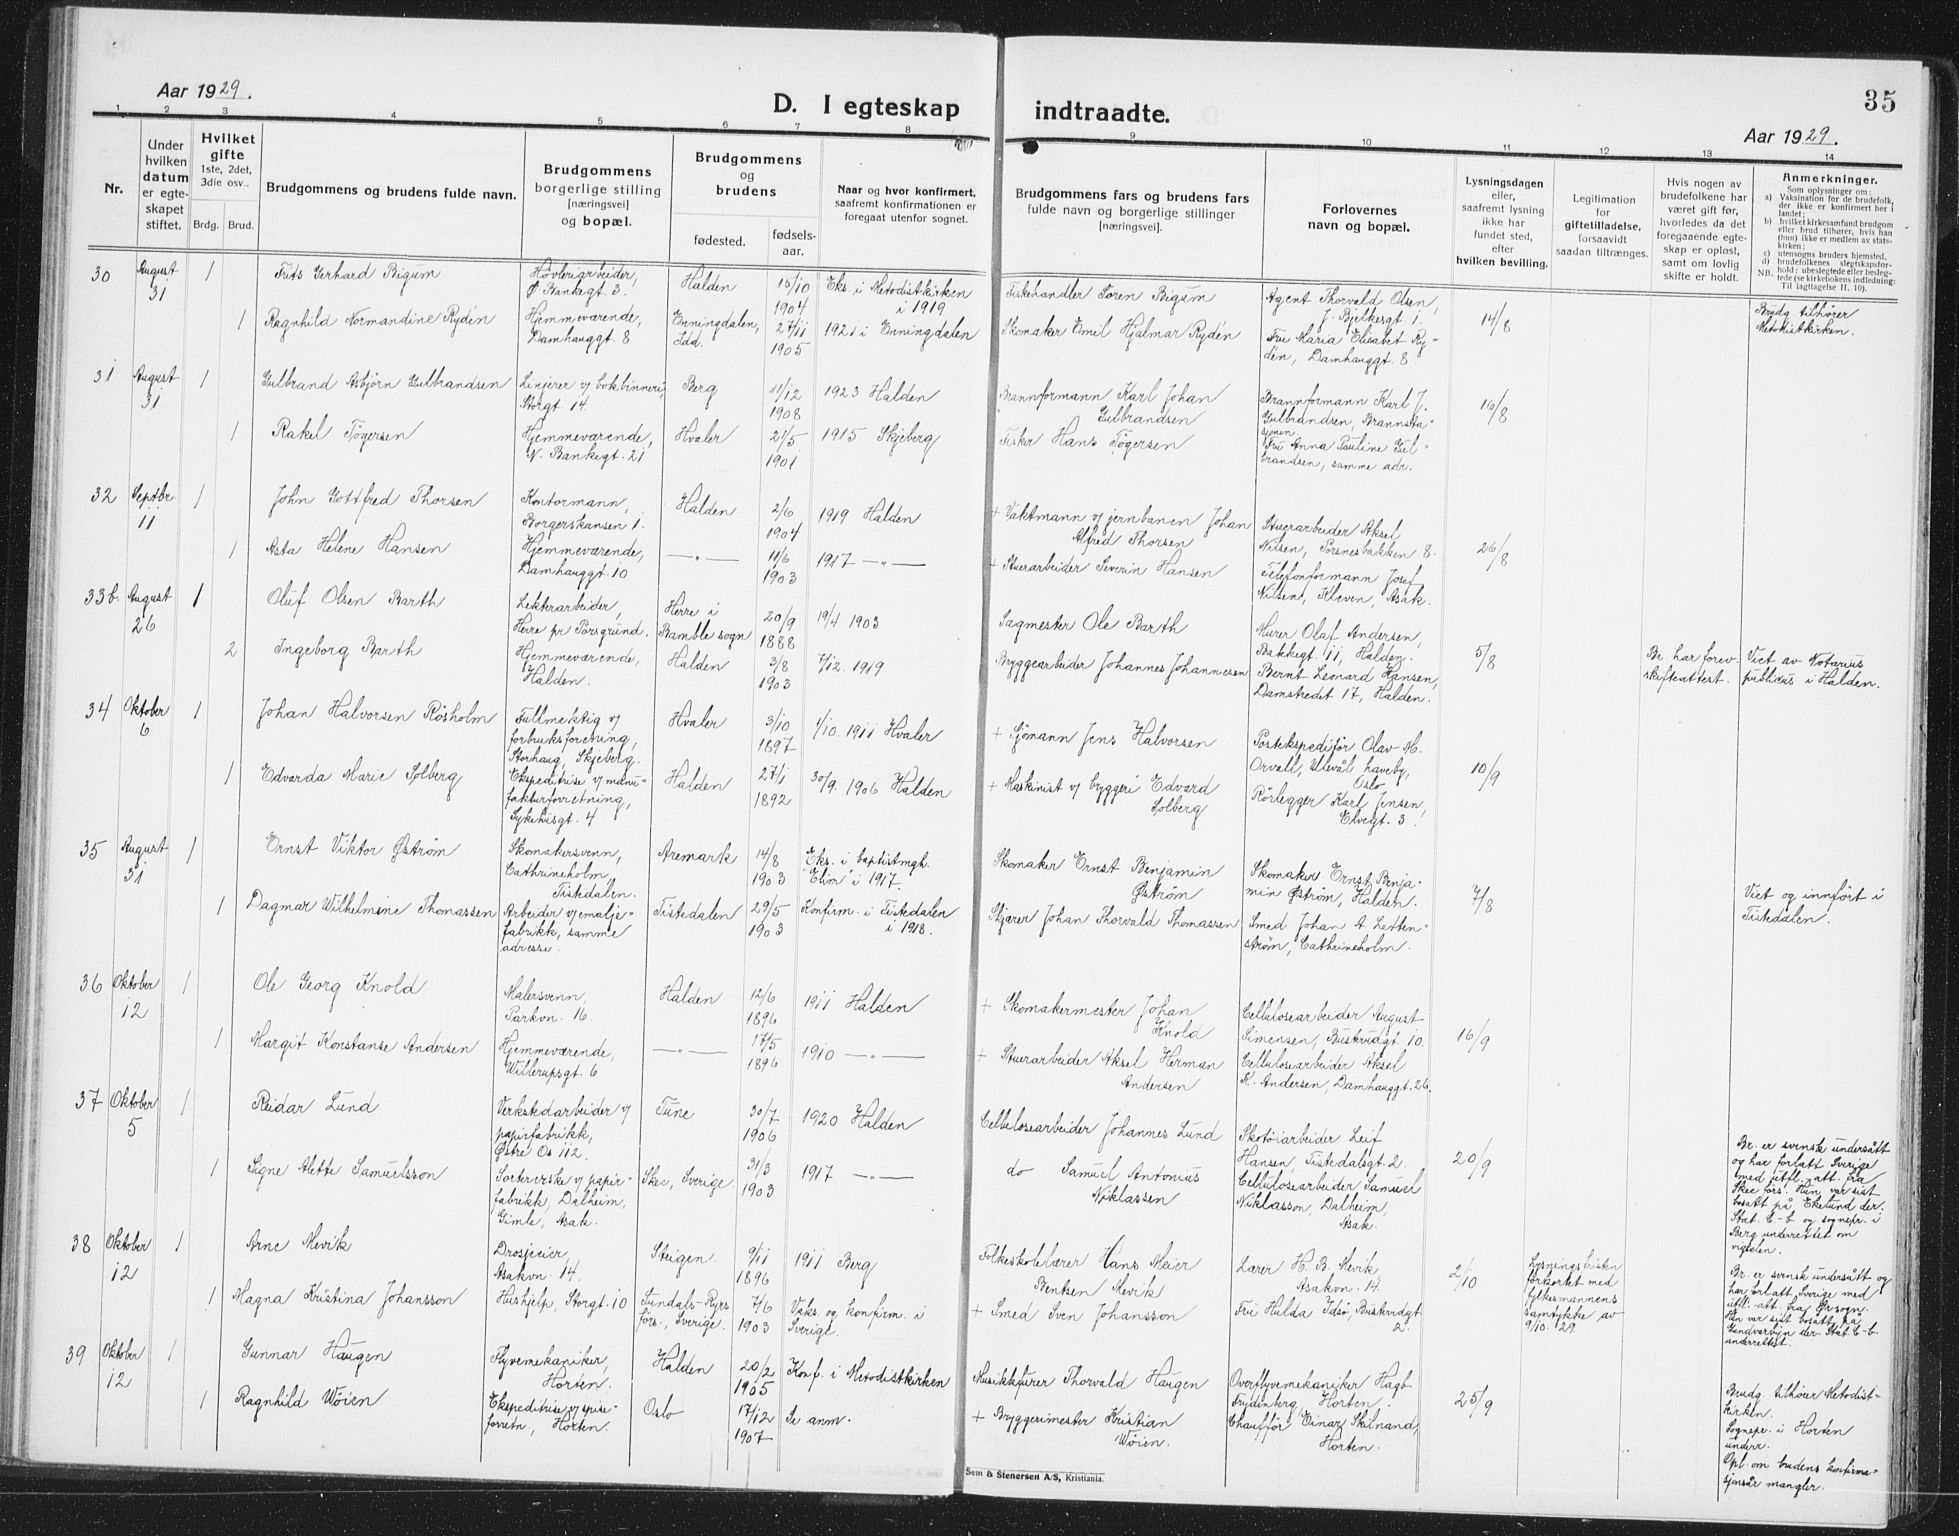 Aar 1929.
D. I egteskap indtraadte.
35
Aar 1929.
1 2 3 4 5 6 7 8 9 10 11 12 13 14
Nr.
Under hvilken datum er egteskapet stiftet.
Hvilket gifte 1ste, 2det, 3die osv..
Brdg. Brud.
Brudgommens og brudens fulde navn.
Brudgommens borgerlige stilling [næringsvei] og bopæl.
Brudgommens og brudens
fødested.
fødselsaar.
Naar og hvor konfirmert, saafremt konfirmationen er foregaat utenfor sognet.
Brudgommens fars og brudens fars fulde navn og borgerlige stillinger [næringsvei].
Forlovernes navn og bopæl.
Lysningsdagen eller, saafremt lysning ikke har fundet sted, efter hvilken bevilling.
Legitimation for giftetilladelse, forsaavidt saadan tiltrænges.
Hvis nogen av brudefolkene har været gift før, hvorledes da det foregaaende egteskap er opløst, samt om lovlig skifte er holdt.
Anmerkninger.
Som oplysninger om:
a) Vaksination for de brudefolk, der ikke er konfirmert her i landet;
b) hvilket kirkesamfund brudgom eller brud tilhører, hvis han (hun) ikke er medlem av statskirken;
c) utensogns bruders hjemsted.
d) brudefolkenes slegtskapsforhold: ubeslegtede eller beslegtede (se kirkebokens indledning:
NB. Til iagttagelse II. 10).
30 August 31 1 Frits Gerhard Bigum Høvleriarbeider, J. Bankegt. 3. Halden 15/10 1904 Eks. i Metodistkirken i 1919 Fiskehandler Søren Bigum Agent Thorvald Olsen, J. Bjelkesgt. 1. 14/8 Brudg. tilhører Metodistkirken.
1 Ragnhild Normandine Rydén Hjemmeværende, Damhauggt. 8 Enningdalen, Idd. 27/11 1905 1921 i Enningdalen Skomaker Emil Hjalmar Rydén Fru Maria Elisabet Rydén, Damhauggt. 8.
31 August 31 1 Gulbrand Asbjørn Gulbrandsen Linjerer v/ bokbinneri, Storgt. 14. Berg 11/12 1908 1923 Halden Brannformann Karl Johan Gulbrandsen Brannformann Karl J. Gulbrandsen, Brannstasjonen. 16/8
1 Rakel Tøgersen Hjemmeværende, N. Bankegt. 21 Hvaler 21/5 1901 1915 Skjeberg Fisker Hans Tøgersen Fru Anna Pauline Gulbrandsen, samme adr.
32 Septbr. 11 1 John Gottfred Thorsen Kontormann, Borgerskansen 1. Halden 2/6 1904 1919 Halden + Vaktmann v/ jernbanen Johan Alfred Thorsen Stuerarbeider Aksel Nilsen, Torsnesbakken 8. 26/8
1 Asta Helene Hansen Hjemmeværende, Damhauggt. 10 —"— 11/6 1903 1917 —"— + Stuerarbeider Severin Hansen Telefonformann Josef Nilsen, Kleven, Asak.
33b. August 26 1 Oluf Olsen Barth Lekterarbeider, Herre pr Porsgrund. Herre i Bamble sogn 20/9 1888 19/4 1903 Sagmester Ole Barth Murer Olaf Andersen, Bakkegt. 11, Halden. 5/8
2 Ingeborg Barth Hjemmeværende, Halden. Halden 3/8 1903 7/12. 1919 Bryggearbeider Johannes Johannesen Bernt Leonard Hansen, Damstredet 17, Halden. Br. har forev. skifteattest. Viet av Notarius publicus i Halden.
34 Oktober 6 1 Johan Halvorsen Røsholm Fullmektig v/ forbruksforening, Storhaug, Skjeberg. Hvaler 3/10 1897 1/10. 1911 Hvaler + Sjømann Jens Halvorsen Postekspeditør Olav M. Orvall, Ullevål haveby, Oslo 10/9
1 Edvarda Marie Solberg Ekspeditrise v/ manufakturforretning, Sykehusgt. 4 Halden 27/1 1892 30/9. 1906 Halden + Maskinist v/ bryggeri Edvard Solberg Rørlegger Karl Jensen, Elvegt. 3.
35 August 31 1 Ernst Viktor Østrøm Skomakersvenn, Cathrineholm, Tistedalen. Aremark 14/8 1903 Eks. i baptistmgh. "Elim" i 1917. Skomaker Ernst Benjamin Østrøm Skomaker Ernst Benjamin Østrøm, Halden. 7/8 Viet og innført i Tistedalen.
1 Dagmar Wilhelmine Thomassen Arbeider v/ emaljefabrikk, samme adresse. Tistedalen 29/5 1903 Konfirm. i Tistedalen i 1918. Skjærer Johan Thorvald Thomassen Smed Johan A. Lettenstrøm, Cathrineholm.
36 Oktober 12 1 Ole Georg Knold Malersvenn, Parkvn. 16. Halden 12/6 1896 1911 Halden + Skomakermester Johan Knold Cellulosearbeider August Simensen, Buskvudgt. 10. 16/9
1 Margit Konstanse Andersen Hjemmeværende, Willerupsgt. 6 —"— 17/5 1896 1910 —"— + Stuerarbeider Aksel Herman Andersen Cellulosearbeider Aksel K. Andersen, Damhauggt. 26.
37 Oktober 5 1 Reidar Lund Verkstedarbeider v/ papirfabrikk, Østre Os 112. Tune 30/7 1906 1920 Halden Cellulosearbeider Johannes Lund Skotøiarbeider Leif Hansen, Tistedalsgt. 2. 20/9
1 Signe Alette Samuelsson Sorterske v/ papirfabrikk, Dalheim, Gimle, Asak. Skee, Sverige. 31/3 1903 1917 —"— do Samuel Antonius Niklassen Cellulosearbeider Samuel Niklasson, Dalheim, Asak. Br. er svensk undersått og har forlatt Sverige med utfl. att. fra Skee førs. Hun var sist bosatt på Ekelund der. Stat. C-b. og sognepr. i Berg underrettet om vigselen.
38 Oktober 12 1 Arne Mevik Drosjeeier, Asakvn. 14. Steigen. 9/11 1896 1911 Berg Folkeskolelærer Hans Meier Bentsen Mevik Lærer H. B. Mevik, Asakvn. 14. 2/10 Lysningsfristen forkortet med fylkesmannens samtykke av 9/10. 29.
1 Magna Kristina Johansson Hushjelp, Storgt. 10 Sundals-Ryrs førs., Sverige. 7/6 1903 Vaks. og konfirm. i Sverige. + Smed Sven Johansson Fru Hulda Idsø, Buskvudgt. 2. Br. er svensk undersått og har forlatt Sverige med utfl. att. fra Ør sogn. Hun var sist bosatt på Gundvarbyn der. Stat. C-b. underrettet.
39 Oktober 12 1 Gunnar Haugen Flyvemekaniker, Horten. Halden 20/2 1905 Konf. i Metodistkirken Musikkfører Thorvald Haugen Overflyvemekaniker Hagb. Frydenberg, Horten. 25/9 Brudg. tilhører Metodistkirken.
1 Ragnhild Wøien Ekspeditrise v/ spiseforretn., Horten. Oslo 17/12 1907 Se anm. + Bryggerimester Kristian Wøien. Chauffør Einar Skilnand, Horten. Sognepr. i Horten underr. Opl. om brudens konfirmasjonsår mangler.
Sem & Stenersen A/S, Kristiania.